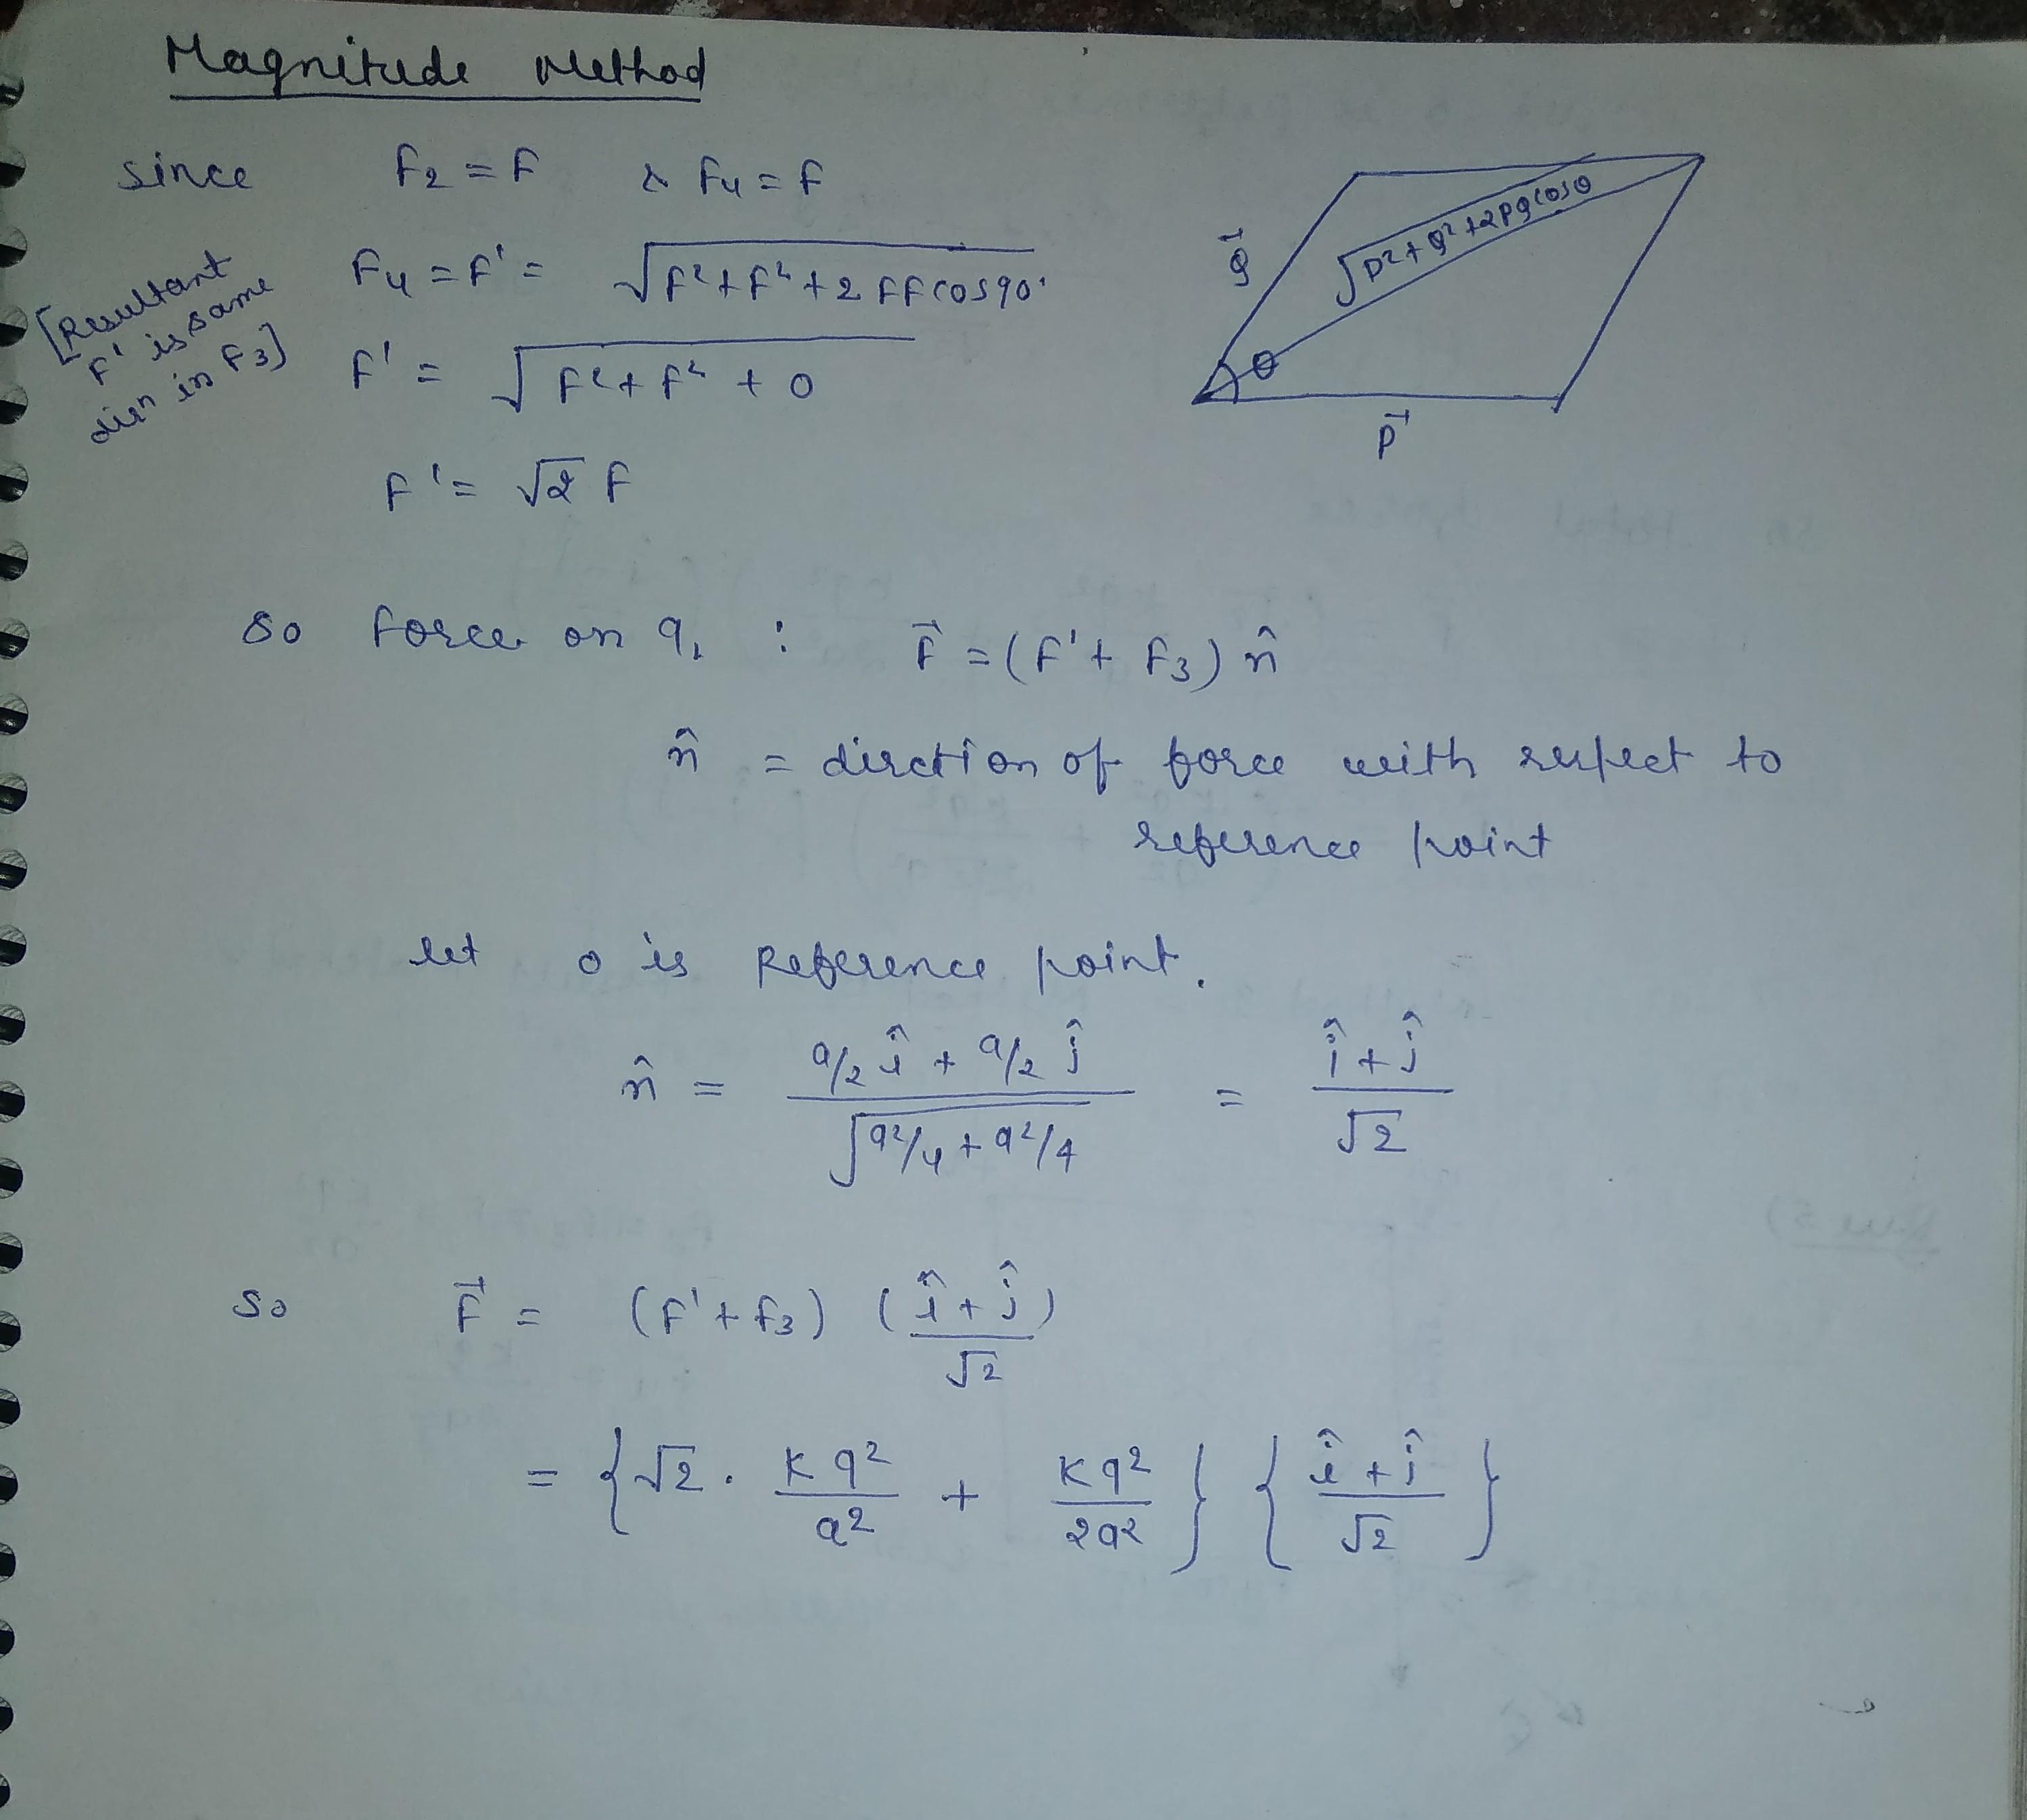 Magnitude Method
since F₂ = F & F₄ = F
[Resultant
F' is same
dirn in F₃]
F₄ = F' = √(F² + F² + 2 F F cos90°)
F' = √(F² + F² + 0)
F' = √2 F
Q⃗
√(P² + Q² + 2PQ cosθ)
θ
P⃗
So force on q₁ : F⃗ = (F' + F₃) n̂
n̂ = dirction of force with respect to
reference point
let o is Reference point.
n̂ = (a/2 î + a/2 ĵ) / √(a²/4 + a²/4) = (î + ĵ) / √2
So F⃗ = (F' + F₃) (î + ĵ) / √2
= {√2 . Kq²/a² + Kq²/2a²} {(î + ĵ) / √2}